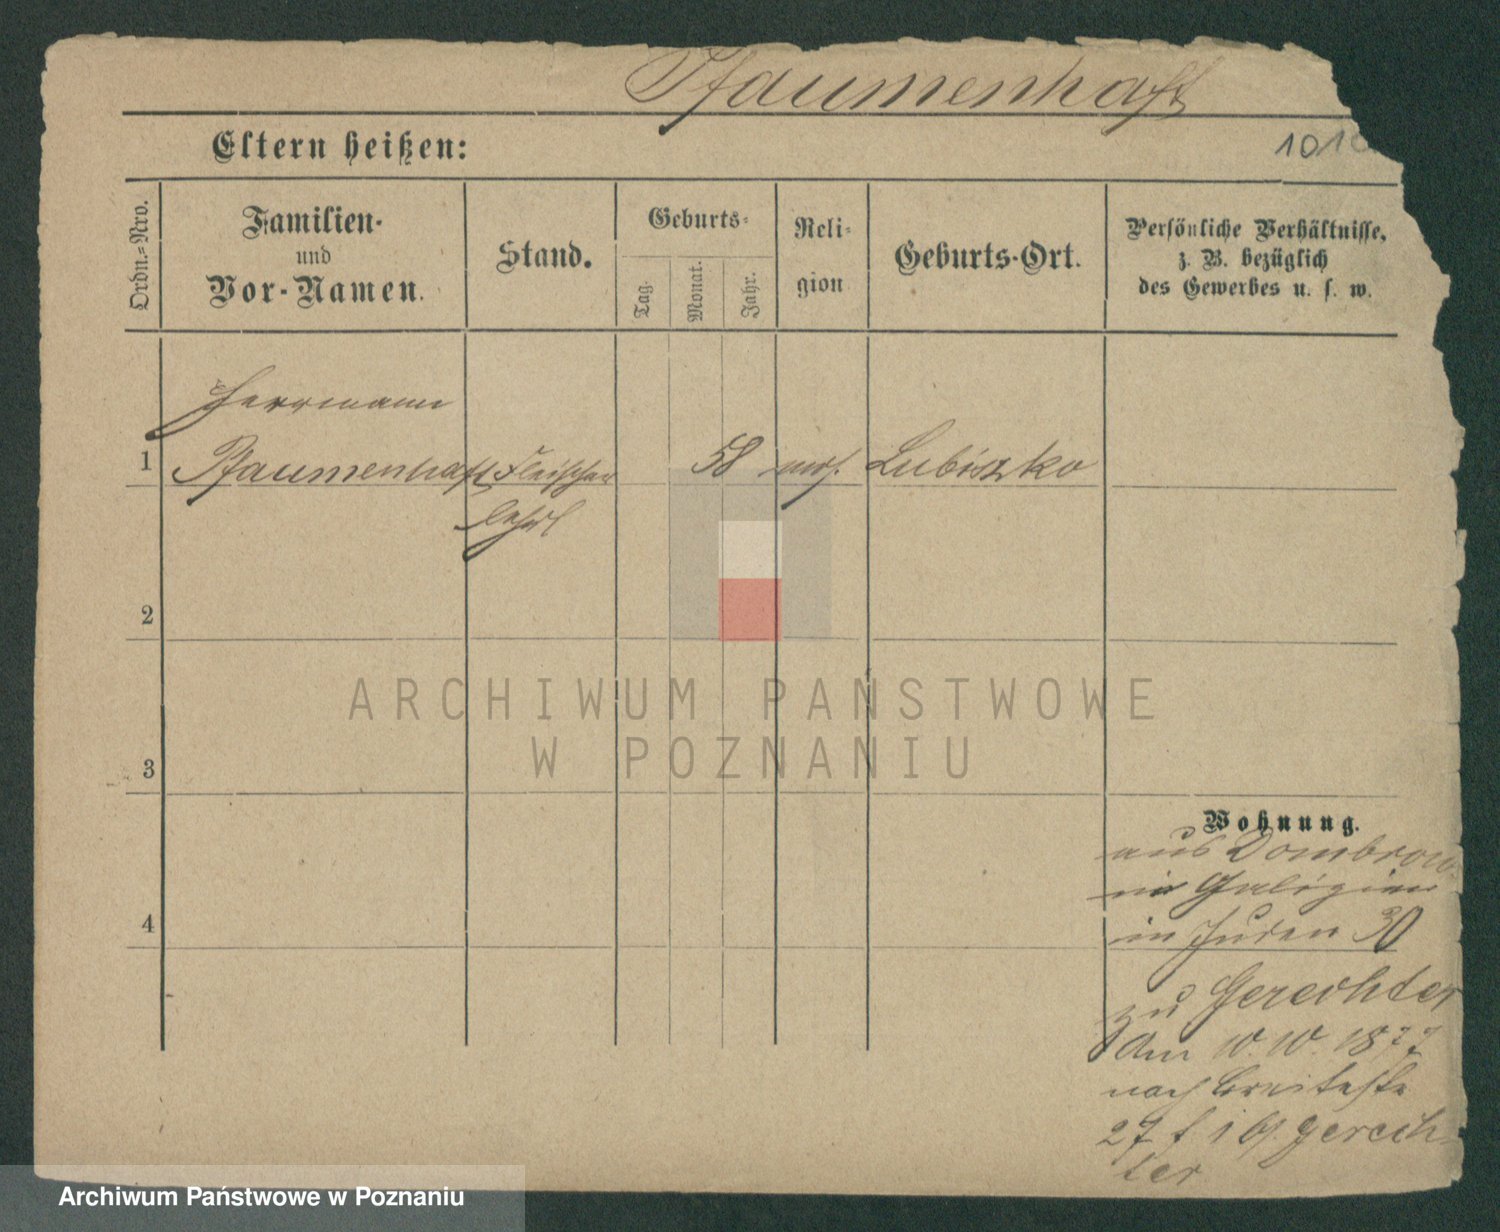 Pfaumenhaft
Eltern heißen:
1010
Ordn.-Nro.
Familien-
und
Vor-Namen.
Stand.
Geburts-
Tag.
Monat.
Jahr.
Reli-
gion
Geburts-Ort.
Persönliche Verhältnisse,
z. B. bezüglich
des Gewerbes u. s. w.
Herrmann
1 Pfaumenhaft Fleischer 58 mos. Lubiszko
Lehrl
2
3
4
ARCHIWUM PAŃSTWOWE
W POZNANIU
Wohnung.
aus Dombrow
in Galizien
in Juden 30
zu Gerechter
Am 10. 10. 1877
nach Breitestr
27 f i b. gerech-
ter
Archiwum Państwowe w Poznaniu